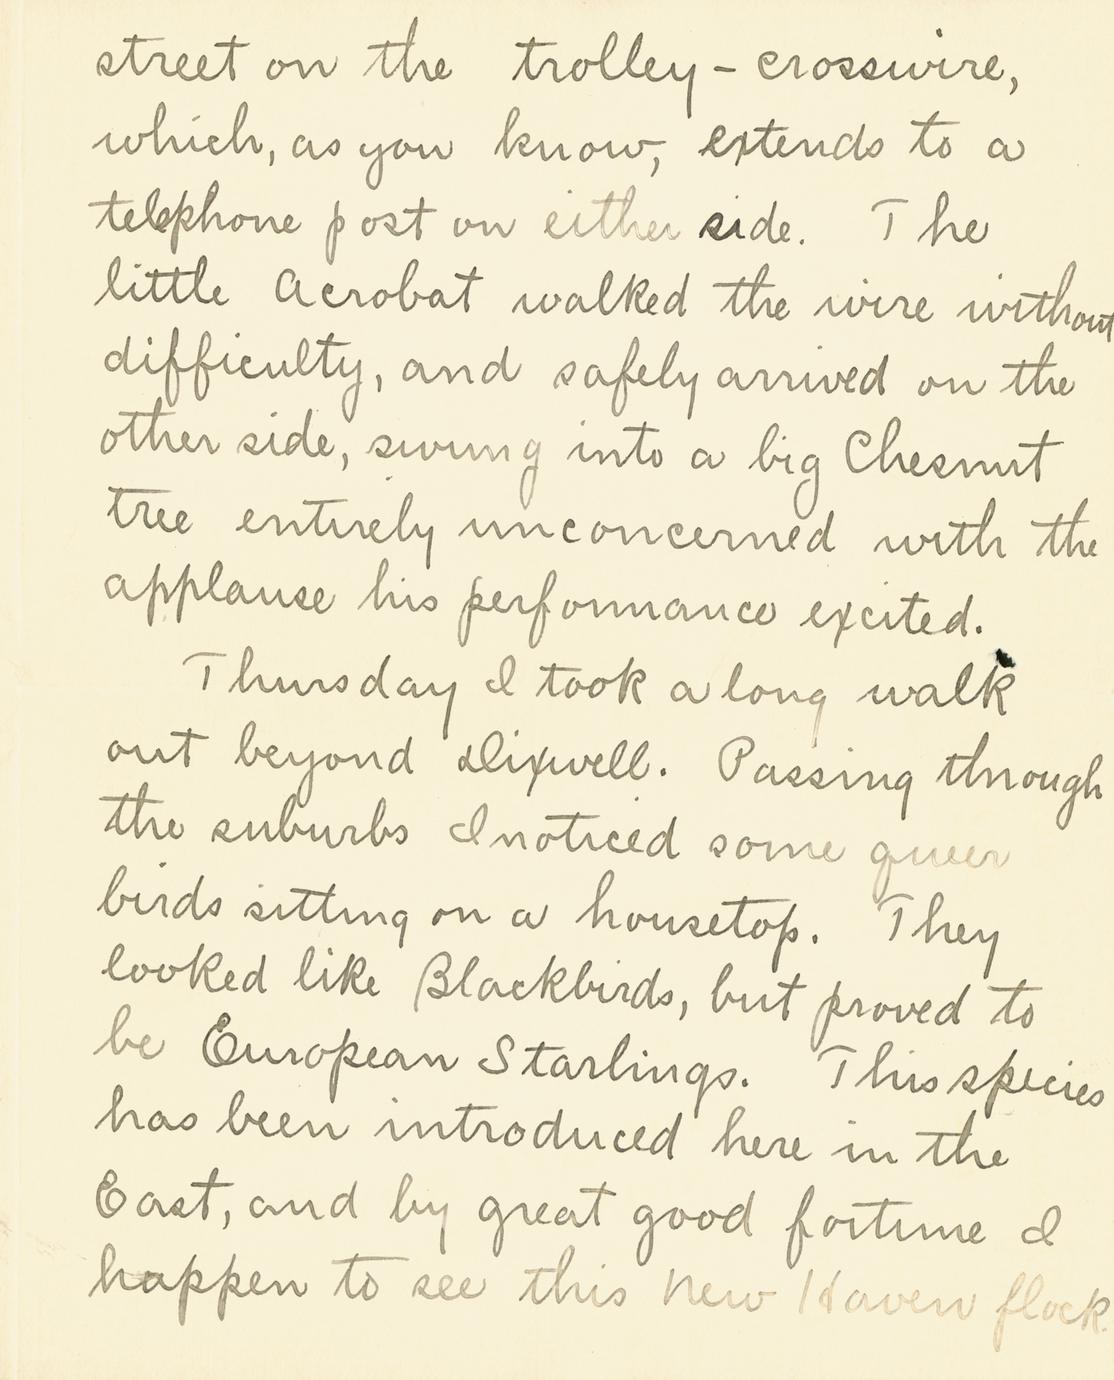 street on the trolley - crosswire,
which, as you know, extends to a
telephone post on either side. The
little Acrobat walked the wire without
difficulty, and safely arrived on the
other side, swung into a big Chesnut
tree entirely unconcerned with the
applause his performance excited.
Thursday I took a long walk
out beyond Dixwell. Passing through
the suburbs I noticed some queer
birds sitting on a housetop. They
looked like Blackbirds, but proved to
be European Starlings. This species
has been introduced here in the
East, and by great good fortune I
happen to see this New Haven flock.